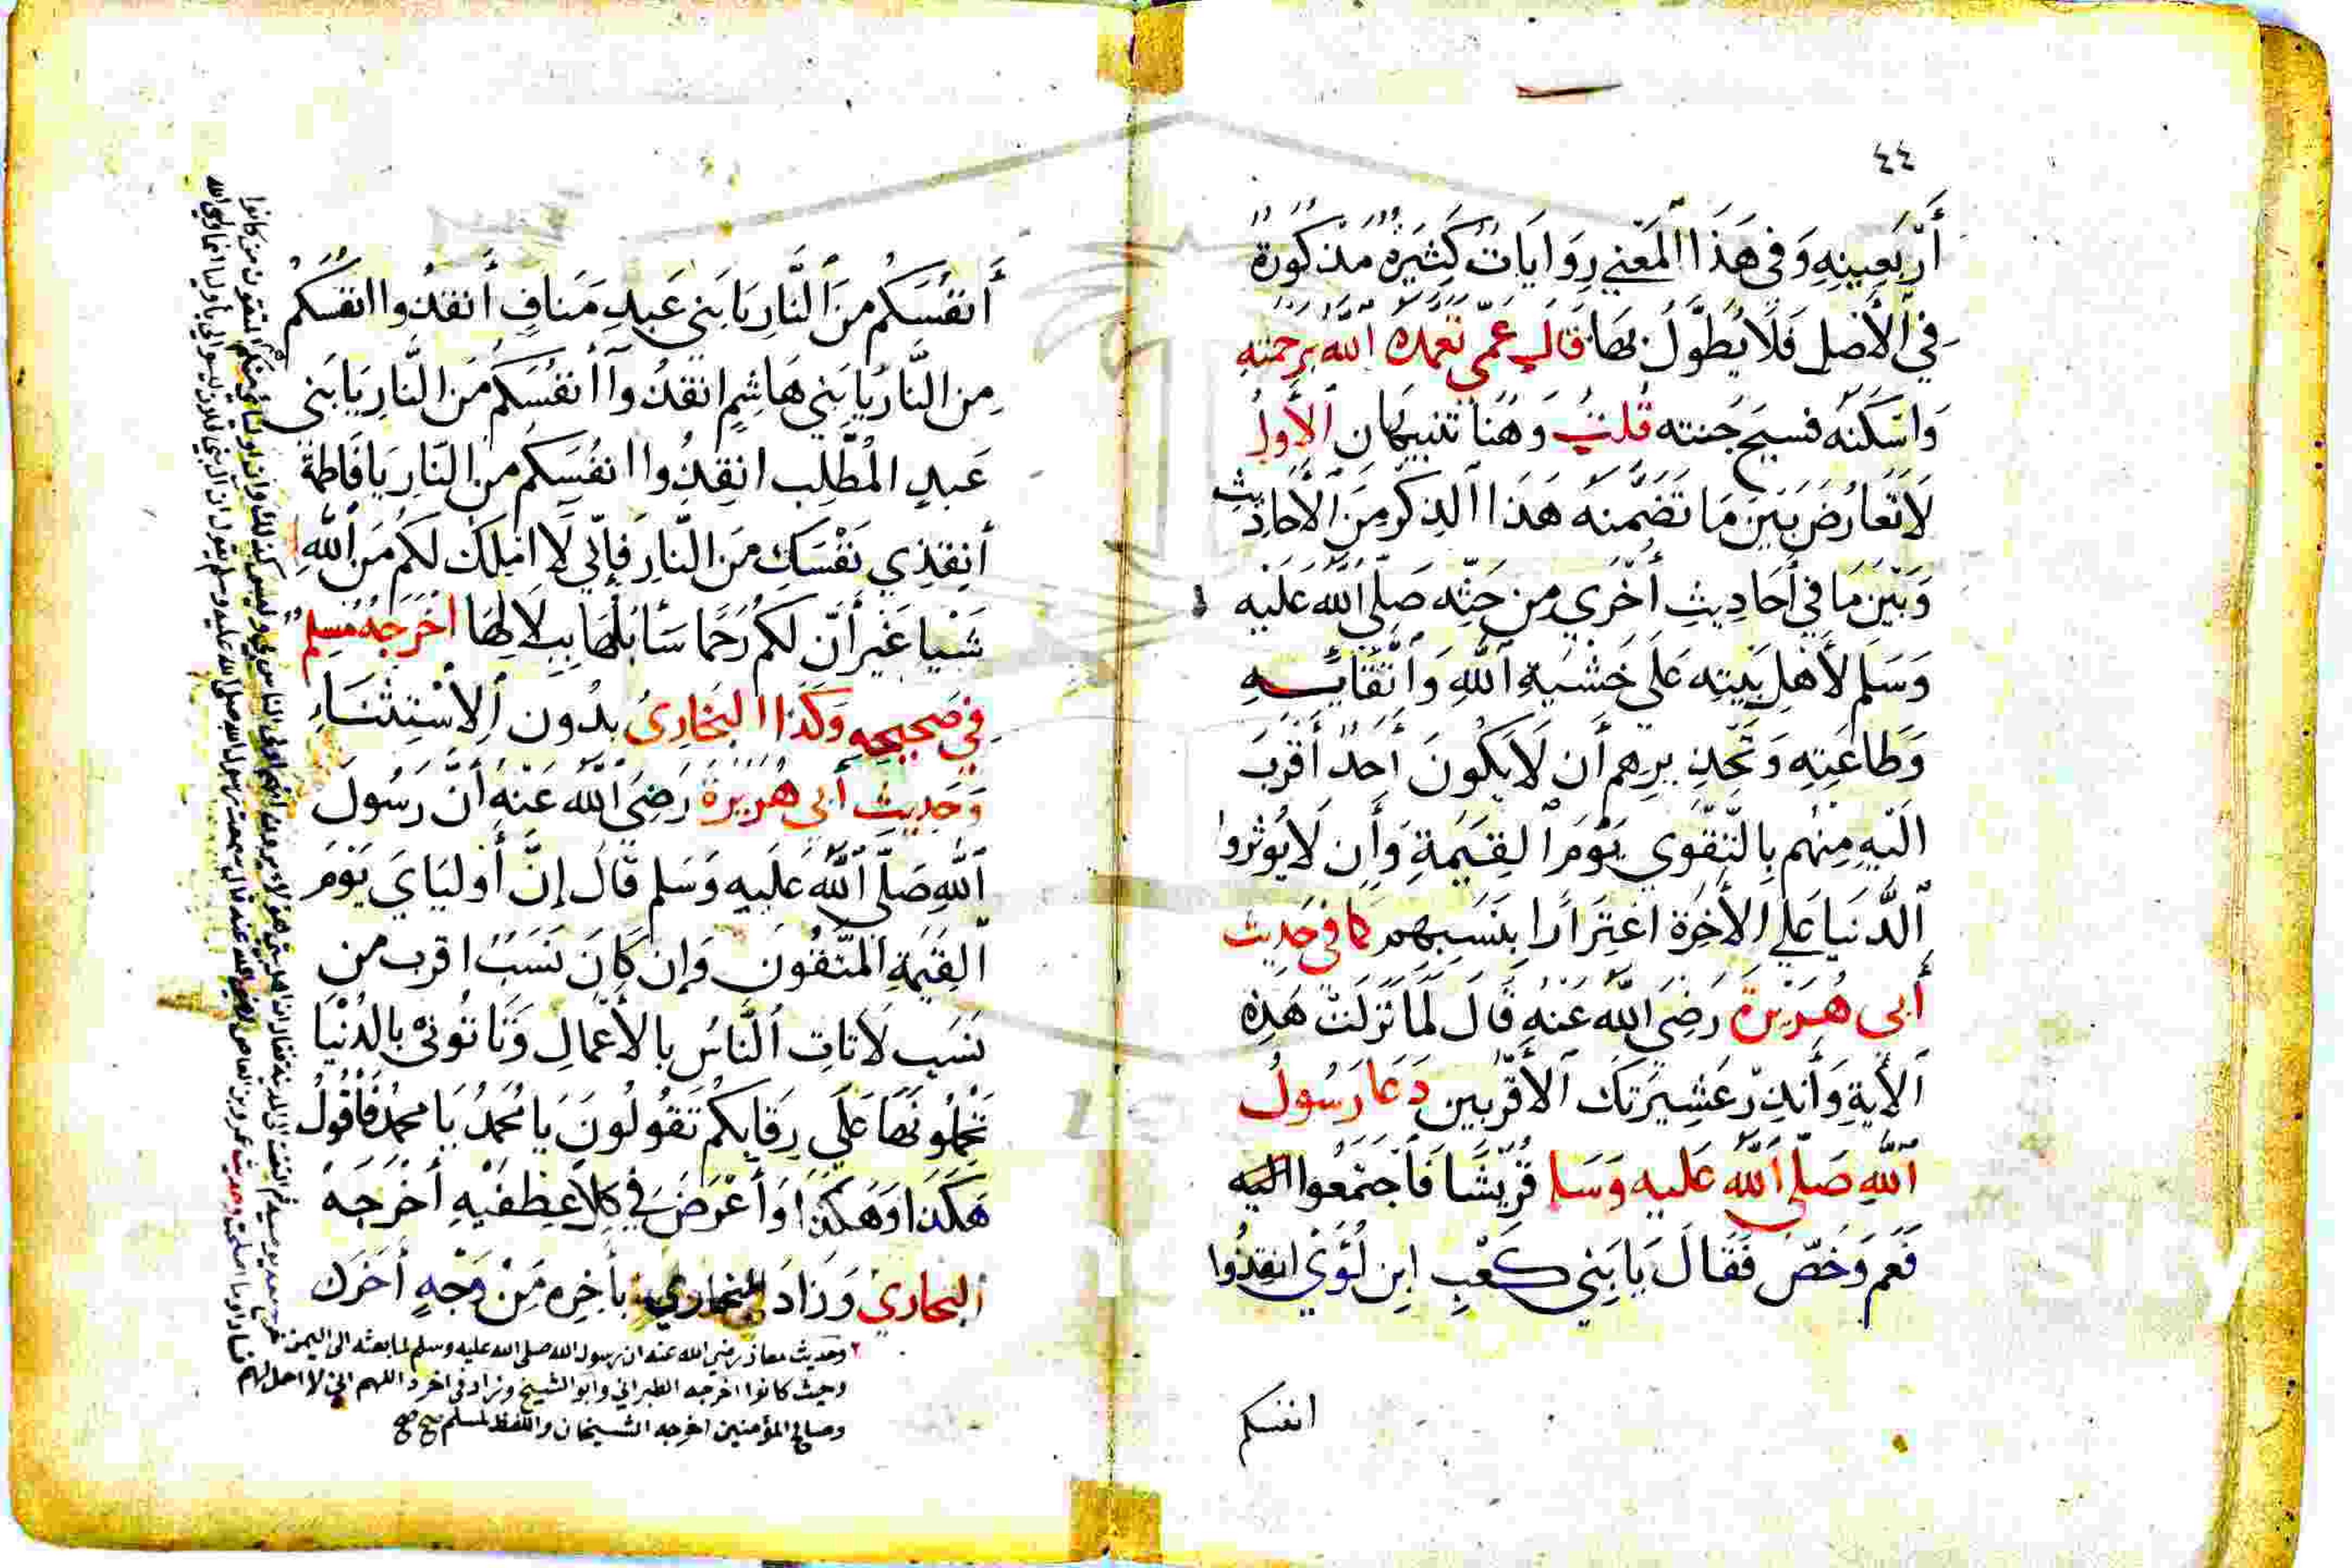 ٤٤
أَرْبَعِينِهِ وَفِى هَذَا الْمَعْنِي رِوَايَاتٌ كَثِيَرةٌ مَذْكُورَةٌ
فِي الْأَصْلِ فَلَا يُطَوَّلُ بِهَا قَالَ عَمِّي تَغَمَّدَهُ اللَّهُ بِرَحْمَتِهِ
وَاسْكَنَهُ فسيح جَنته قُلتُ وَهُنَا تنبيهَان الأَولُ
لَا تَعَارُضَ بَيَن مَا تَضَمَّنَهُ هَذَا الذِكْر مِنَ الأَحَادِيث
وَبَيْنَ مَا فِي أَحَادِيثِ أُخْرَى مِن حَثِّه صَلَّى اللَّهُ عَلَيْهِ
وَسَلَم لأَهْلِ بَيْتِه عَلَى خَشْيَةِ اللَّهِ وَاتِّقَائِـهِ
وَطَاعَتِهِ وَتَحْذِيرِهِم أَن لَا يَكُونَ أَحَدٌ أَقْرَبَ
الَيْهِ مِنْهُم بِالتَّقْوَى يَوْمَ القِيَمَةِ وَأَن لَا يُوثرُوا
الدُّنْيَا عَلَي الأَخِرَة اغْتِرَارًا بِنَسَبِهِم كما فى حَدِيث
أَبى هُـرَيْرَة رَضِيَ اللَّهُ عَنْهُ قَالَ لَمَّا نَزَلَتْ هَذِهِ
الأَيةِ وَأَنذِرْ عَشِيَرتَكَ الأَقْرَبِين دَعَا رَسُولُ
اللَّهِ صَلَّى اللَّهُ عَلَيه وَسَلم قُرَيْشًا فَاجْتَمَعُوا اليَه
فَعَم وَخَصّ فَقَالَ يَا بَنِي كَعْبِ ابِن لُؤَيْ انقِذُوا
انفسكم
أَنفُسَكُم مِنَ النَّارِ يَا بَنِي عَبدِ مَنافٍ أَنقذُوا انفسَكُمْ
مِن النَّارِ يَا بَنِي هَاشِمٍ انقذُوا أَنفُسَكُمْ مِنَ النَّارِ يَا بَنِي
عَبدِ المُطَّلِب انقِذُوا انفُسَكُم مِن النَّارِ يَا فَاطِمَة
أنقِذِي نَفْسَكِ مِنَ النَّارِ فَإِنِّي لَا امْلِكُ لكُم مِنَ اللَّهِ
شَيْيا غَيْر أَنّ لكُم رَحِمًا سَأَبُلُّهَا بِبِلَالِهَا أخْرَجَهُ مُسْلِم
فِي صَحِيحِهِ وَكَذَا البُخَارِىُ بِدُون الِاسْتِثْنَـاءِ
وَحَدِيثِ أبى هُرَيْرَة رَضِيَ اللَّهُ عَنْهُ أَنَّ رَسُولَ
اللَّهِ صَلَّى اللَّهُ عَلَيهِ وَسَلم قَالَ إنَّ أَوليَاىَ يَوْمَ
القِيَمَةِ المتَّقُونَ وَإن كَانَ نَسَبٌ اقرب من
نَسَبٍ لَا تَاتِ النَّاسُ بِالأَعْمَالِ وَتَاتُونى بِالدُنْيَا
تَحْمِلُونَهَا عَلَي رِقَابِكُمْ تَقُولُونَ يَا مُحَمَّدُ يَا مُحَمَّدُ فَأقُولُ
هَكَذَا وَهَكَذَا وَأَعْرَضَ فِي كِلَا عِطْفَيْهِ أَخْرَجَهُ
البخارِي وَزَادَ البخاري بأَخِرِه مِنْ وَجْهٍ أَخَرَ
٢ وحديث معاذ رضي الله عنه ان رسول الله صلى الله عليه وسلم لما بعثه الى اليمن
وحيث كانوا اخرجه الطبراني وابو الشيخ وزاد فى اخره اللهم اني لا احل لهم
وصالح المؤمنين اخرجه الشيخان واللفظ لمسلم صح صح